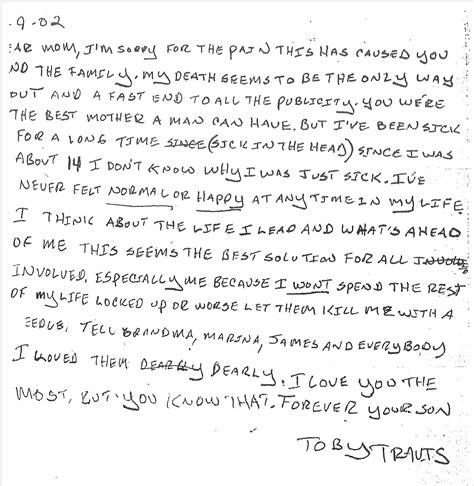 .9-02
EAR MOM, I'M SORRY FOR THE PAIN THIS HAS CAUSED YOU
ND THE FAMILY. MY DEATH SEEMS TO BE THE ONLY WAY
OUT AND A FAST END TO ALL THE PUBLICITY. YOU WERE
THE BEST MOTHER A MAN CAN HAVE. BUT I'VE BEEN SICK
FOR A LONG TIME SINCE (SICK IN THE HEAD) SINCE I WAS
ABOUT 14 I DON'T KNOW WHY I WAS JUST SICK. I'VE
NEVER FELT NORMAL OR HAPPY AT ANY TIME IN MY LIFE.
I THINK ABOUT THE LIFE I LEAD AND WHAT'S AHEAD
OF ME THIS SEEMS THE BEST SOLUTION FOR ALL
INVOLVED. ESPECIALLY ME BECAUSE I WONT SPEND THE REST
OF MY LIFE LOCKED UP OR WORSE LET THEM KILL ME WITH A
EEDLE. TELL GRANDMA, MARINA, JAMES AND EVERYBODY
I LOVED THEM DEARLY DEARLY. I LOVE YOU THE
MOST, BUT YOU KNOW THAT. FOREVER YOUR SON
TOBY TRAVIS